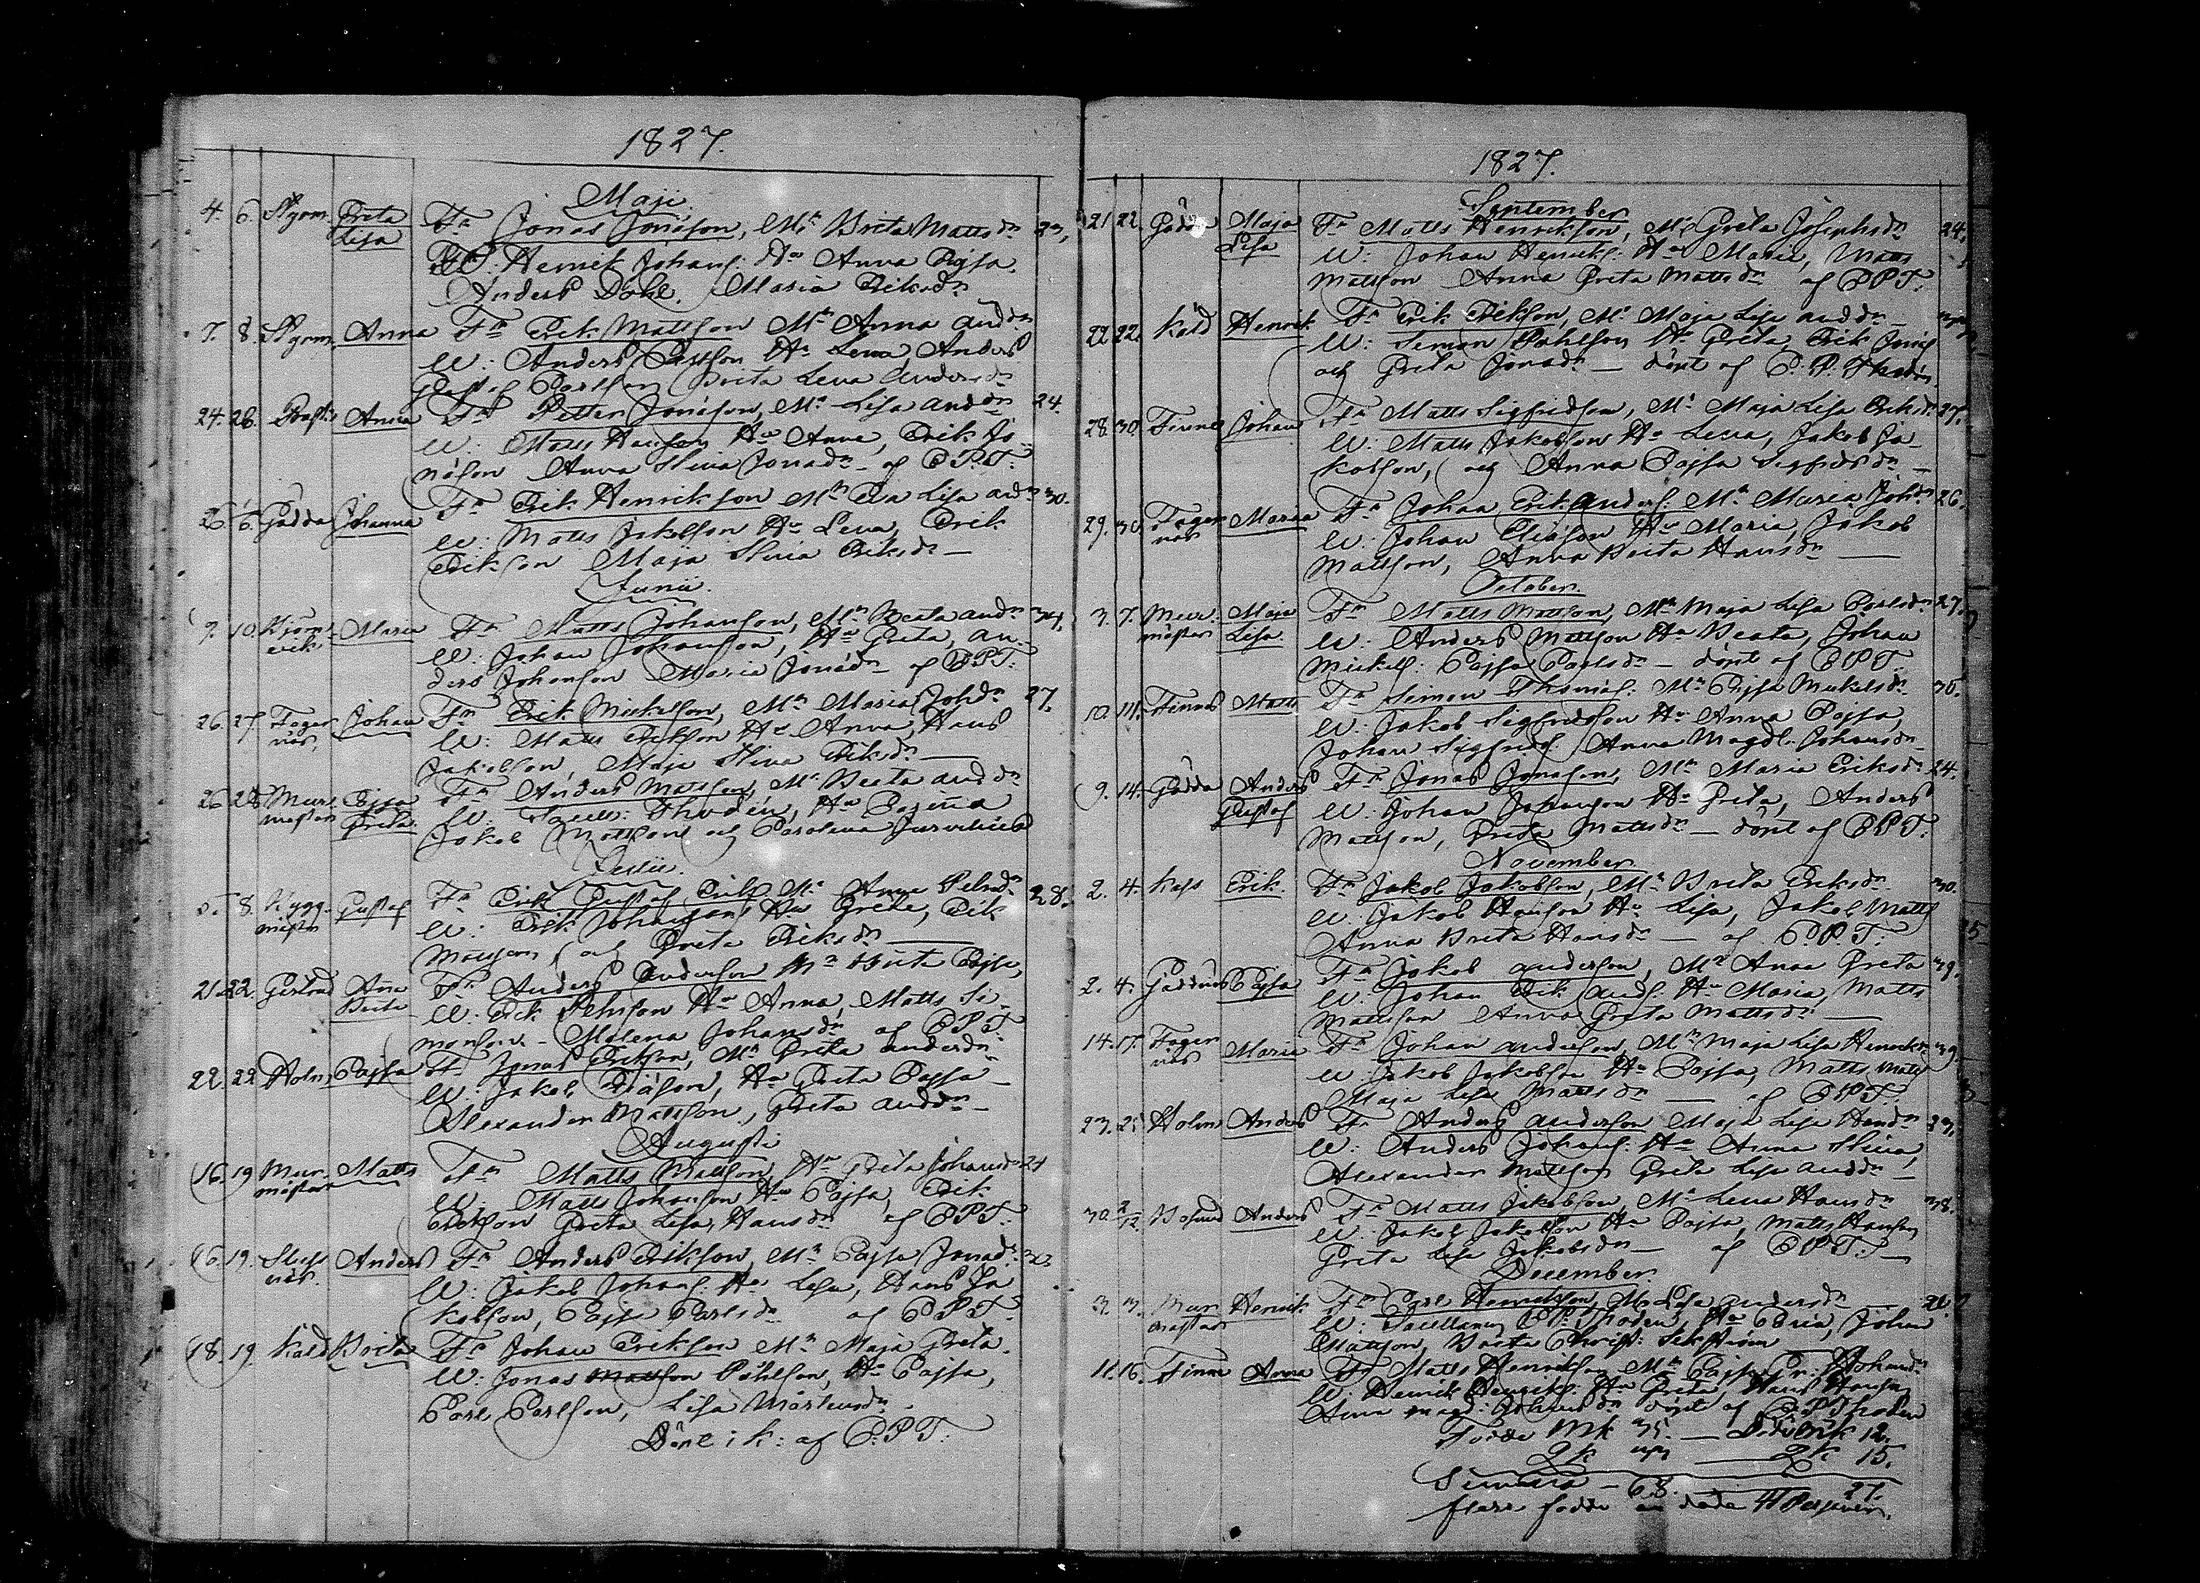 1827.
Maji.
4. 6. Styrm. Greta Fr Jonas Jonasson, Mr Brita Mattsdr
Lisa W: Henrik Johans: Hu Anna Cajsa,
Anders Dahl, Maria Eriksdr
7. 8. Styrm. Anna Fr Erik Mattsson Mr Anna Anddr
W: Anders Carlsson Hu Lena Anders
Gustaf Carlsson Brita Lena Andersdr
24. 26. Anna Fr Petter Jonasson, Mr Lisa Anddr 24.
W: Matts Hansson Hu Anna, Erik Jo-
nasson Anna Stina Jonadr af C.P.T:
26 Gadda Johanna Fr Erik Henriksson Mr Lisa Andr 30.
W: Matts Jakobsson Hu Lena, Erik
Eriksson Maja Stina Eriksdr —
Junii.
9. 10. Maria Fr Matts Johansson, Mr Beata Andr 34.
W: Johan Johansson, Hu Greta, An-
ders Johansson Maria Jonadr — af C.P.T:
26. 27. Fager Johan Fr Erik Mickelsson, Mr Maria Johdr 27.
näs, W: Matts Eriksson Hu Anna, Hans
Jakobsson, Maja Stina Eriksdr —
26 28 Mur Cajsa Fr Anders Mattsson, Mr Beata Anddr
mästar Greta W: Sacell: Thodén, Hu
Jakob Mattsson och Carolina
Julii.
8. Bygg- Gustaf Fr Erik Gustaf Eriks: Mr Anna Pehrsdr 28.
mästar W: Erik Johansson, Hu Greta, Erik
Mattsson, och Greta Eriksdr —
21. 22. Gertrud Ana Fr Anders Andersson Mr Brita Cajsa,
Brita W: Erik Pehrsson Hu Anna, Matts Si-
monson — Malena Johansdr af C.P.T.
22. 22 Holm Cajsa Fr Jonas Eriksson, Mr Greta Andersdr
W: Jakob Eriksson, Hu Greta Cajsa —
Alexander Mattsson, Greta Anddr —
Augusti
16. 19 Mur- Matts Fr Matts Mattsson, Hu Greta Johansdr 24
mästar W: Matts Johansson Hu Cajsa, Erik
Eriksson Greta Lisa Hansdr af C.P.T:
16. 19. Anders Fr Anders Eriksson, Mr Cajsa Jonadr
näs. W: Jakob Johans: Hu Lisa, Hans Ja-
kobsson, Cajsa Carlsdr af C.P.T.
18. 19 Kald Brita Fr Johan Eriksson Mr Maja Greta.
W: Jonas Mattsson Påhlson, Hu Cajsa,
Carl Carlsson, Lisa Mårtensdr.
af C.P.T:
1827.
September
21 22. Gadda Maja Fr Matts Henriksson, Mr Greta Josephsdr 24.
Lisa W: Johan Henriks: Hu Maria, Matts
Mattsson Anna Greta Mattsdr af C.P.T:
22. 22. Kald Henrik Fr Erik Eriksson, Mr Maja Lisa Anddr
W: Simon Påhlsson Hu Greta, Erik
och Greta Jonadr — döpt af C.P. Thodén.
28. 30. Finne Johan Fr Matts Sigfridsson, Mr Maja Lisa Eriksdr 27.
W: Matts Jakobsson Hu Lena, Jakob Ja-
kobsson, och Anna Cajsa Sigfridsdr —
29. 30. Fager Maria Fr Johan Erik Anders: Mr Maria Johdr 26.
näs W: Johan Eliasson Hu Maria, Jakob
Mattsson, Anna Brita Hansdr —
October.
3. 7. Mur- Maja Fr Matts Mattsson, Mr Maja Lisa Carlsdr 27.
mästar Lisa. W: Anders Mattsson Hu Beata, Johan
Mickels: Cajsa Carlsdr — döpt af C.P.T:
10. 14. Finnäs Matts Fr Simon Thomas: Mr Cajsa Mickelsdr 30.
W: Jakob Sigfridsson Hu Anna Cajsa,
Johan Sigfrids: Anna Magdl: Johansdr
9. 14. Gadda Anders Fr Jonas Jonasson, Mr Maria Eriksdr 24.
Gustaf W: Johan Johansson Hu Greta, Anders
Mattsson, Greta Mattsdr — döpt af C.P.T:
November.
2. 4. Kass Erik Fr Jakob Jakobsson, Mr Brita Eriksdr 30.
W: Jakob Hansson Hu Lisa, Jakob Matts
Anna Brita Hansdr — af C.P.T:
2. 4. Cajsa Fr Jakob Andersson, Mr Anna Greta 39.
W: Johan Erik Ands: Hu Maria, Matts
Mattsson Anna Greta Mattsdr —
14. 17. Fager Maria Fr Johan Andersson, Mr Maja Lisa Henriksdr 39.
näs W: Jakob Jakobsson Hu Cajsa, Matts Matts
Maja Lisa Mattsdr — af C.P.T:
23. 25 Holm Anders Fr Anders Andersson Maja Lisa Hendr 33.
W: Anders Johans: Hu Anna Stina,
Alexander Mattsson Greta Lisa Anddr —
30. 2/12 Bosund Anders Fr Matts Jakobsson, Mr Lena Hansdr 38.
W: Jakob Jakobsson Hu Cajsa, Matts Hansson
Greta Lisa Jakobsdr — af C.P.T: —
December.
3. Mur Henrik Fr Carl Henriksson, Mr Lisa Andersdr —
mästar W: Sacellanus C.P. Thodén, Hu Johan
Mattsson, Brita Christ:
11. 16. Finne Anna Fr Matts Henriksson Mr Cajsa Gr: Johansdr
W: Henrik Henriks: Hu Greta, Hans Hansson
Anna Magd: Johansdr döpt af C.P. Thodén
Födde Mk 35. — Döde Mk 12.
Qk — Qk 15.
Summa — 68. 27.
flere födde än döde 41 Personer.